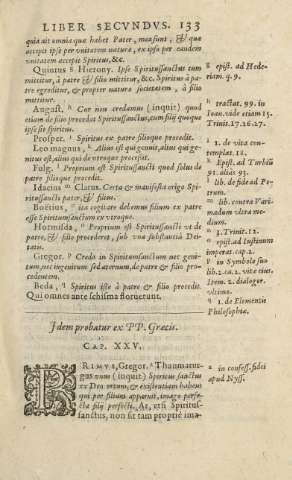 LIBER SECVNDVS. 133
quia ait omnia quæ habet Pater, mea sunt, & quæ
accepit ipse per unitatem naturæ, ex ipso per eandem
unitatem accepit Spiritus, &c.
Quintus g Hierony. Ipse Spiritussanctus cum
mittitur, à patre & filio mittitur, &c. Spiritus à pa-
tre egreditur, & propter naturæ societatem, à filio
mittitur.
August. h Cur non credamus (inquit) quod
etiam de filio procedat Spiritussanctus, cum filij quoque
ipse sit spiritus.
Prosper. i Spiritus ex patre filioque procedit.
Leo magnus, k Alius est qui genuit, alius qui ge-
nitus est, alius qui de utroque processit.
Fulg. l Proprium est Spiritussancti quod solus de
patre filioque procedit.
Idacius m Clarus. Certa & manifesta origo Spi-
ritussancti pater, & filius.
Boëtius, n ita cogitare debemus filium ex patre
esse Spiritumsanctum ex utroque.
Hormisda, o Proprium est Spiritussancti vt de
patre, & filio procederet, sub vna substantia Dei-
tatis.
Gregor. p Credo in Spiritumsanctum nec ge-
nitum, nec ingenitum sed æternum, de patre & filio pro-
cedentem.
Beda, q Spiritus iste à patre & filio procedit.
Qui omnes ante schisma floruerunt.
g epist. ad Hede-
riam. q. 9.
h tractat. 99. in
Ioan. vide etiam 15.
Trinit. 17. 26. 27.
i 1. de vita con-
templat. 18.
k Epist. ad Turbiũ
91. aliàs 93.
l lib. de fide ad Pe-
trum.
m lib. contra Vari-
madum vltra me-
dium.
n 3. Trinit. 12.
o epist. ad Iustinum
imperat. cap. 1.
p in Symbolo suo
lib. 2. ca. 2. vitæ eius.
Item. 2. dialogor.
vltimo.
q 1. de Elementis
Philosophiæ.
Idem probatur ex PP. Græcis.
CAP. XXV.
PRIMVS, Gregor. a Thaumatur-
gus vnum (inquit) Spiritus sanctus
ex Deo ortum, & existentiam habens
qui per filium apparuit, imago perfe-
cta filij perfecti. At, etsi Spiritus-
sanctus, non sit tam propriè ima-
a in confess. fidei
apud Nyss.